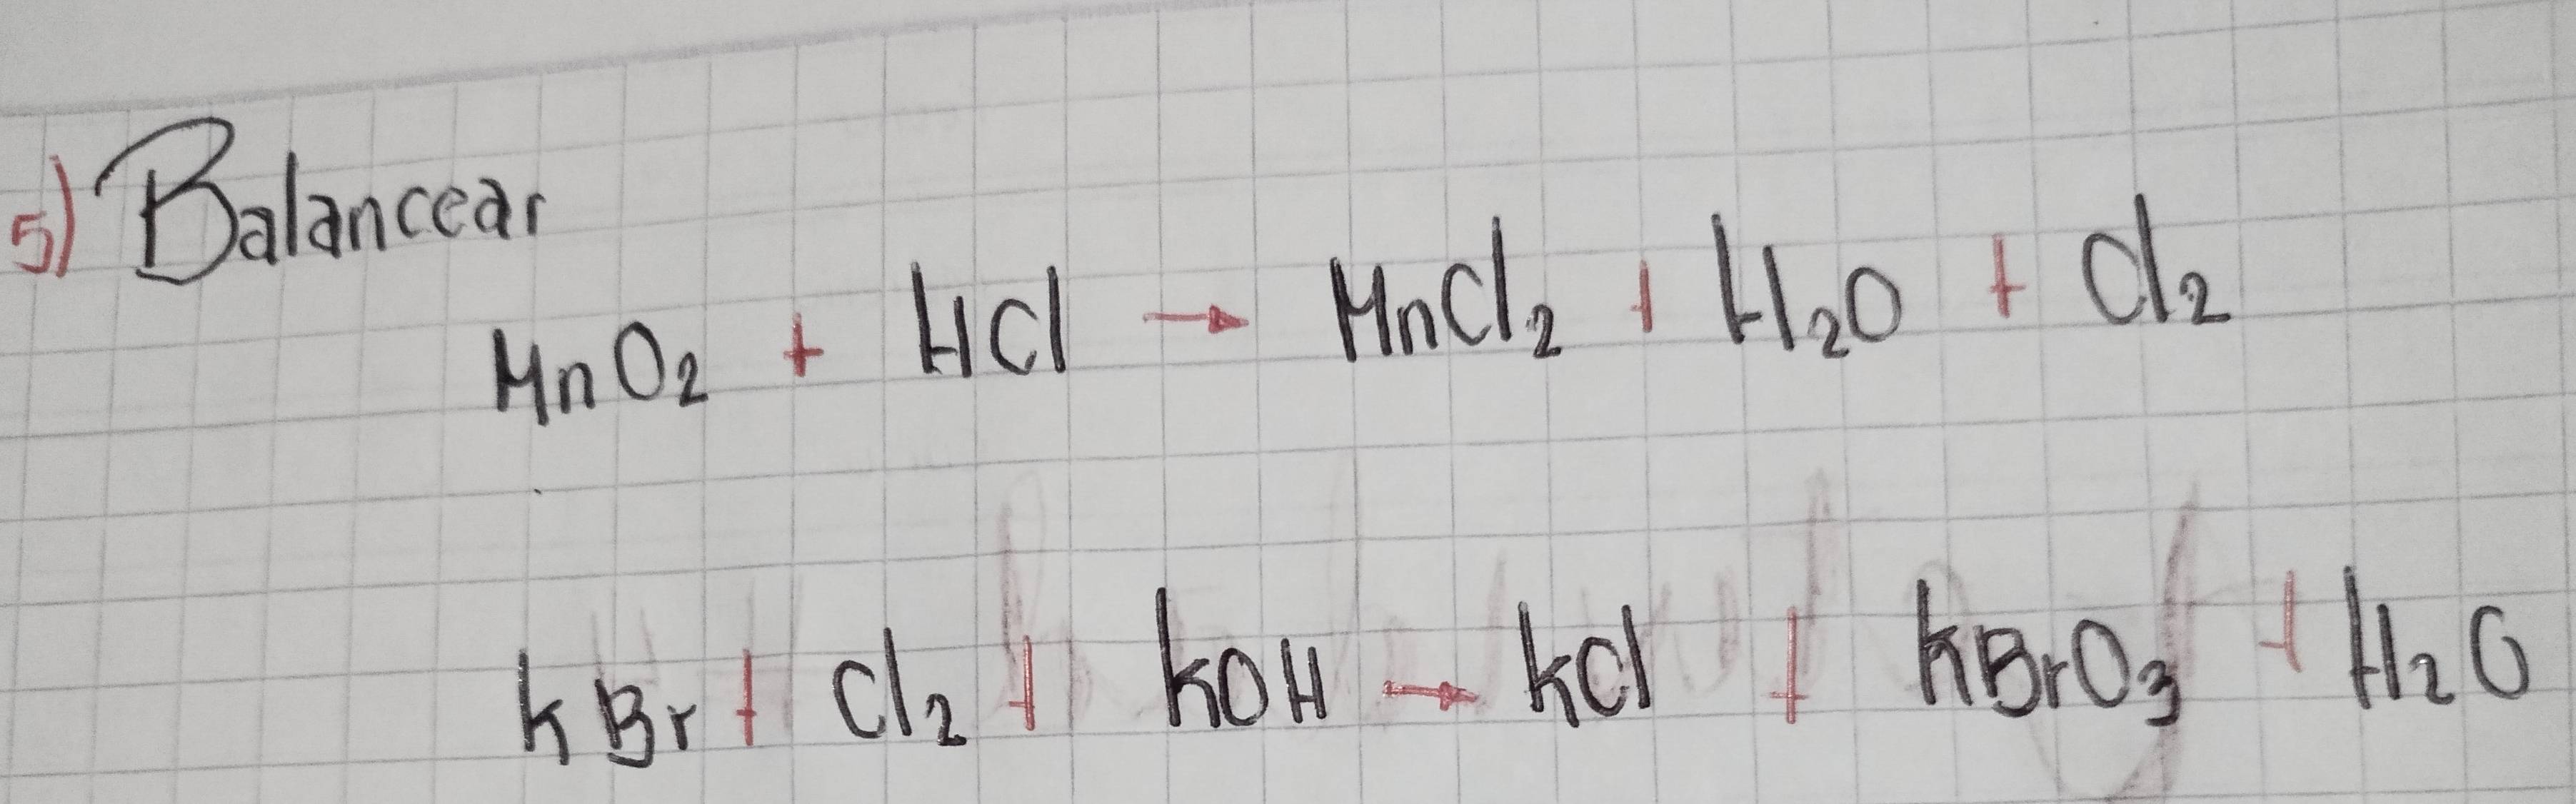 5) Balancear
MnO₂ + HCl → MnCl₂ + H₂O + Cl₂
KBr + Cl₂ + KOH → KCl + KBrO₃ + H₂O